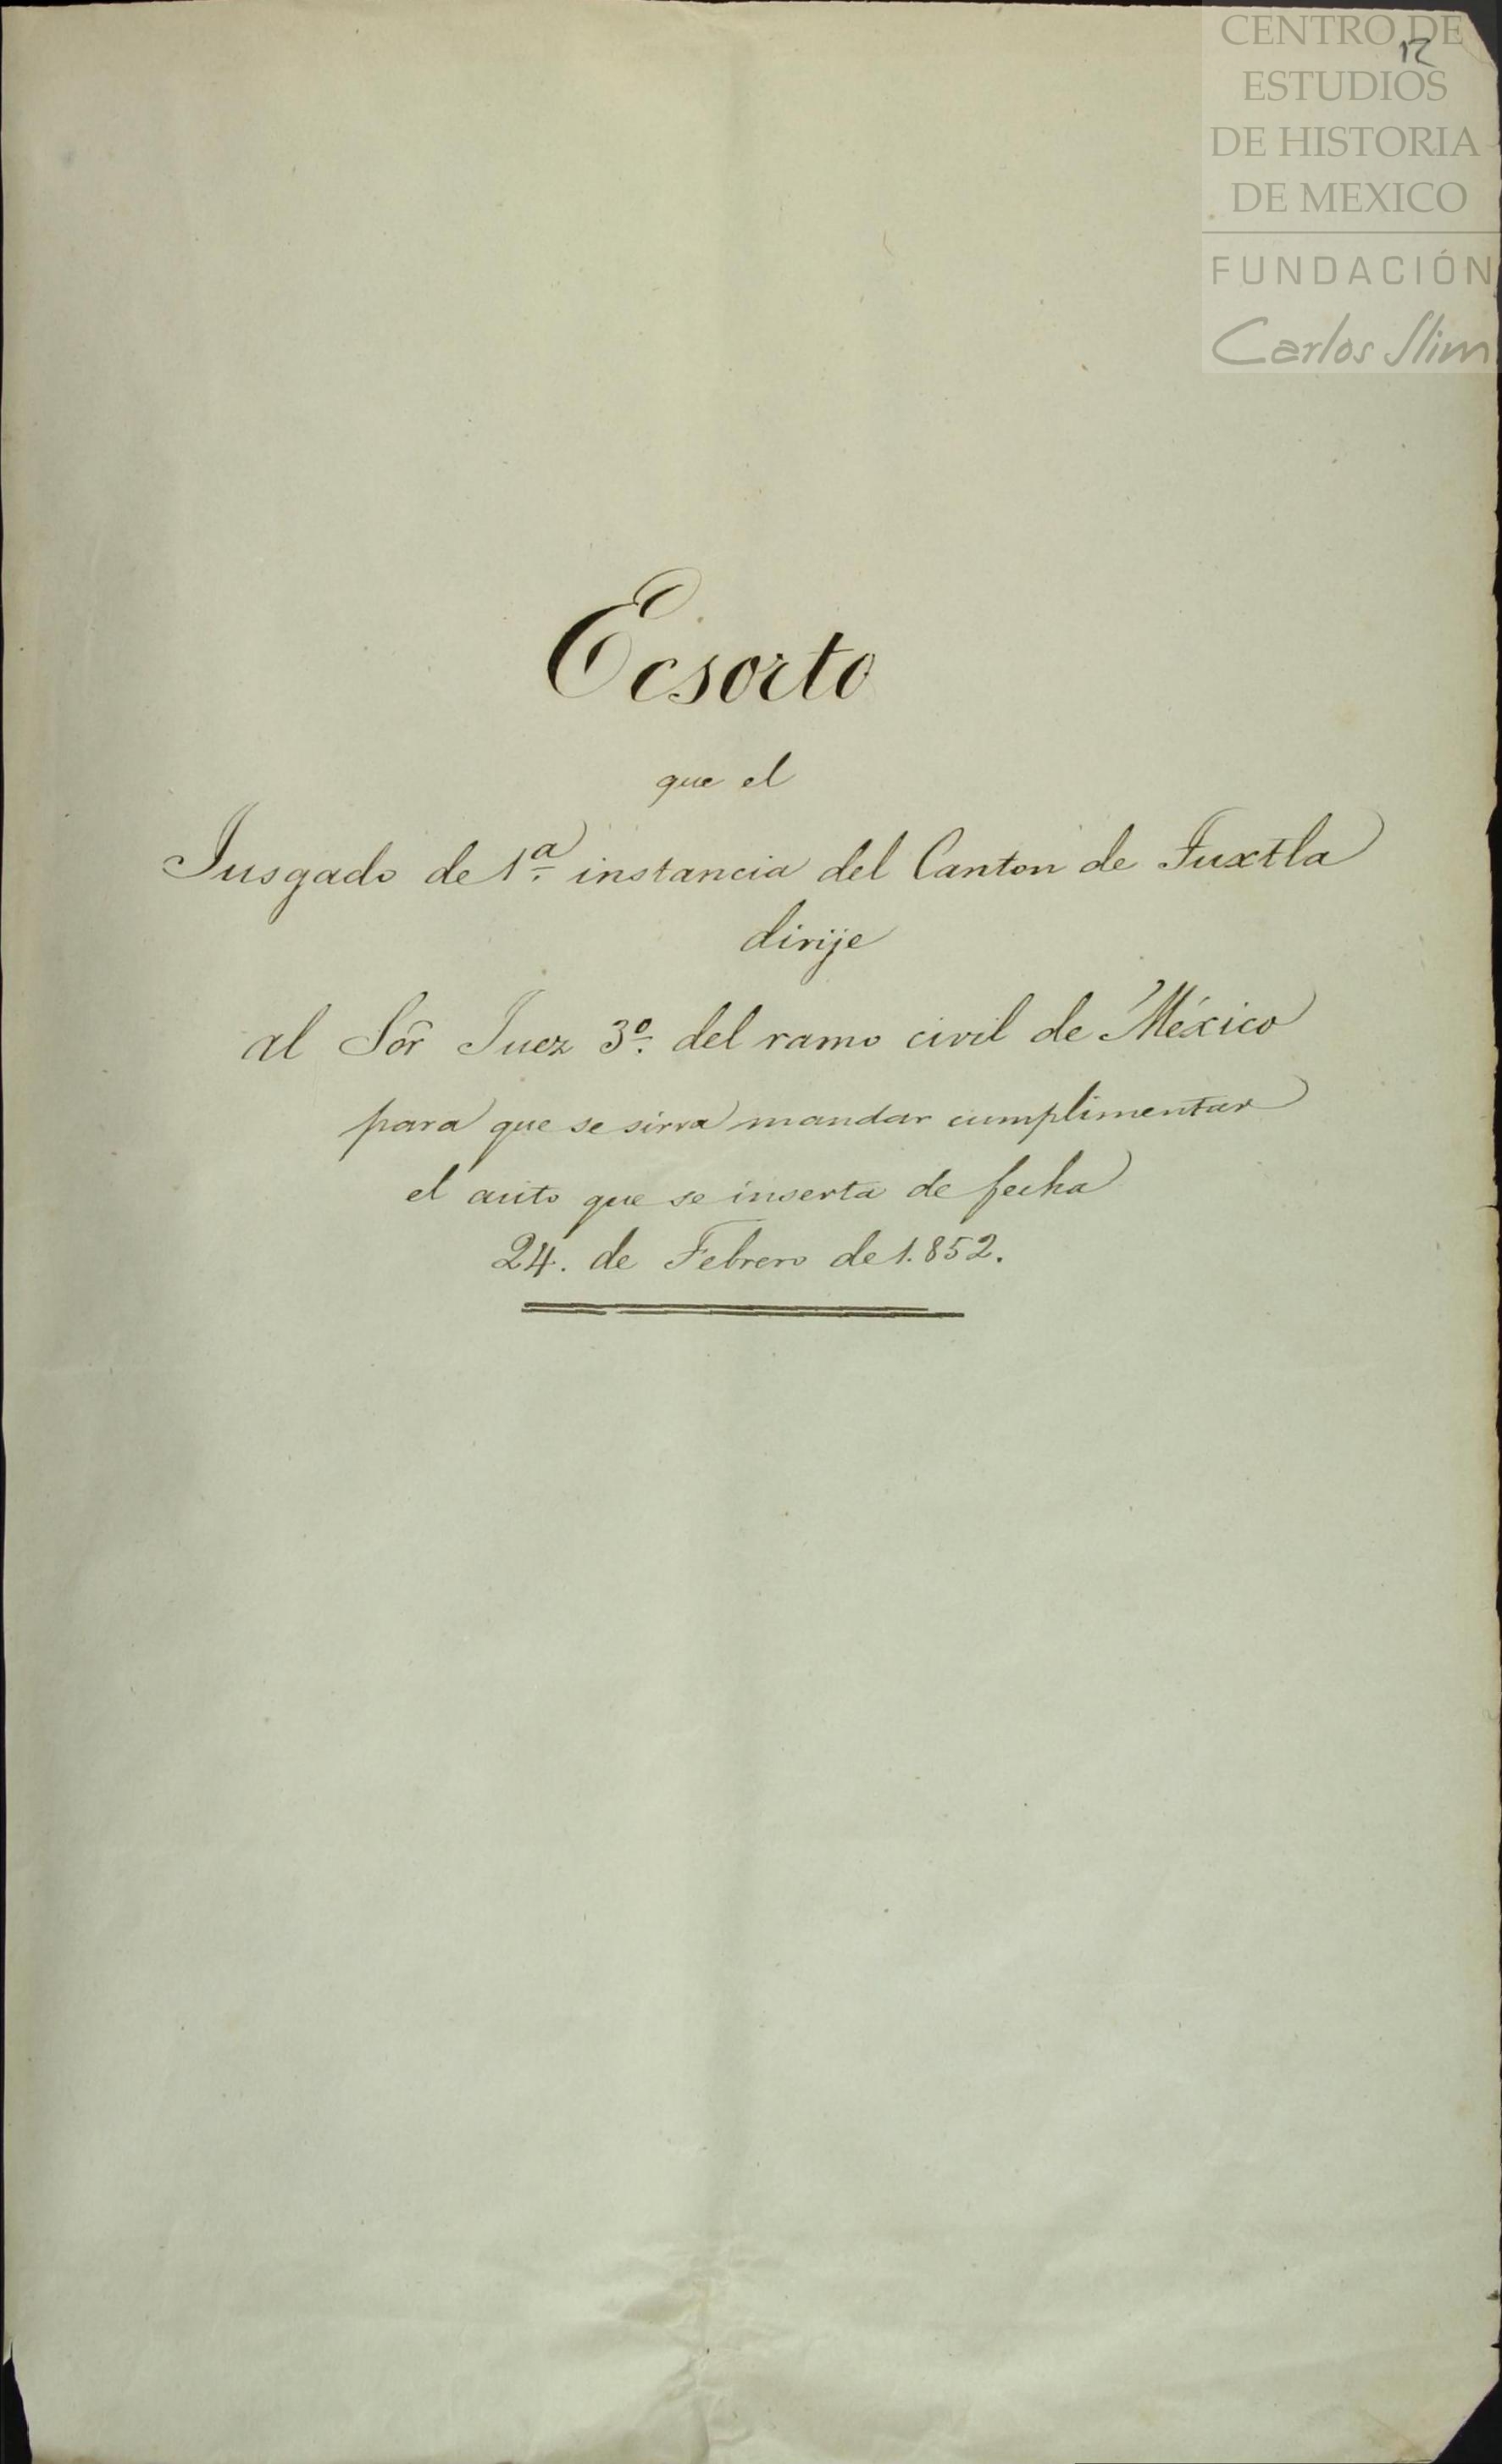 CENTRO DE
12
ESTUDIOS
DE HISTORIA
DE MEXICO
FUNDACIÓN
Carlos Slim
Ecsorto
que el
Jusgado de 1ª instancia del Canton de Tuxtla
dirije
al Sor̂ Juez 3º del ramo civil de México
para que se sirva mandar cumplimentar
el auto que se inserta de fecha
24. de Febrero de 1.852.